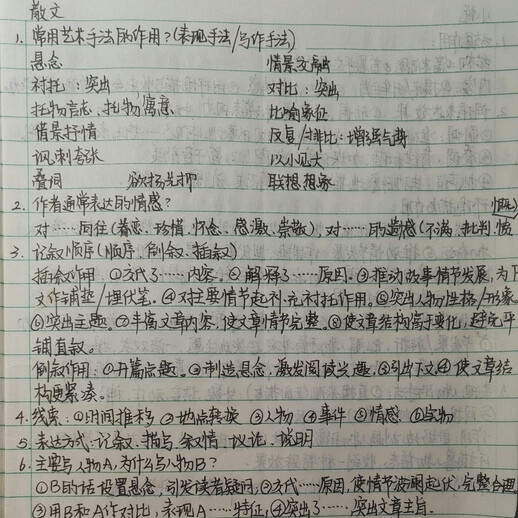 散文
1. 常用艺术手法的作用?(表现手法/写作手法)
悬念 情景交融
衬托:突出 对比:突出
托物言志、托物寓意 比喻象征
借景抒情 反复/排比:增强气势
讽刺夸张 以小见大
叠词 欲扬先抑 联想想象
2. 作者通常表达的情感?
对……向往(眷恋、珍惜、怀念、感激、崇敬),对……的遗憾(不满、批判、愤
3. 记叙顺序(顺序、倒叙、插叙)
插叙作用 ①交代了……内容。②解释了……原因。③推动故事情节发展,为下
文作铺垫/埋伏笔。④对主要情节起补充衬托作用。⑤突出人物性格/形象
⑥突出主题。⑦丰富文章内容,使文章情节完整。⑧使文章结构富于变化,避免平
铺直叙。
倒叙作用:①开篇点题。②制造悬念,激发阅读兴趣。③引出下文④使文章结
构更紧凑。
4. 线索:①时间推移②地点转换③人物④事件⑤情感⑥实物
5. 表达方式:记叙、描写、抒情、议论、说明
6. 主要写人物A,为什么写人物B?
①B的话设置悬念,引发读者疑问;②交代……原因,使情节波澜起伏,完整合理
③用B和A作对比,表现A……特征;④突出了……突出文章主旨。